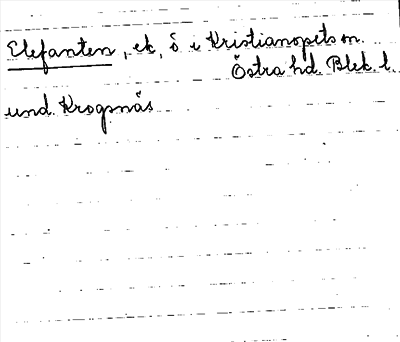 Elefanten, ek, ö i Kristianopels sn.
Östra hd. Blek. l.
und. Krogsnäs